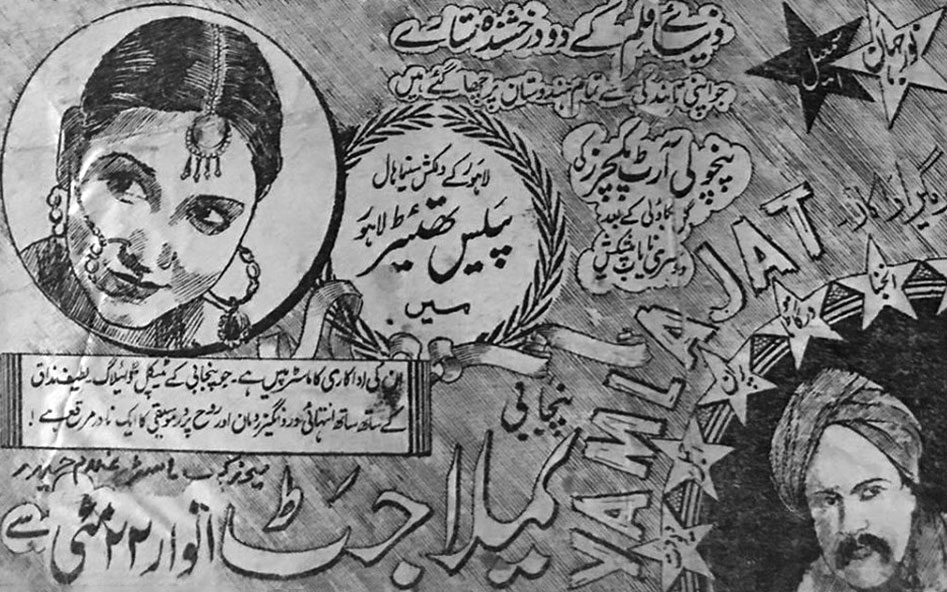 دنیائے فلم کے دو درخشندہ ستارے
جو اپنی تابندگی سے تمام ہندوستان پر چھا گئے ہیں
نورجہاں
پنچولی آرٹ پکچرز کی
گل بکاؤلی کے بعد
دوسری نایاب پیشکش
لاہور کے دلکش سینما ہال
پیلس تھیٹر لاہور
میں
ان کی اداکاری کا ماسٹر پیس ہے۔ جو پنجابی کے ٹیپکل ڈائیلاگ۔ لطیف مذاق
کے ساتھ ساتھ انتہائی درد انگیز رومان اور روح پرور موسیقی کا ایک نادر مرقع ہے !
ماسٹر غلام حیدر
پنجابی
یملا جٹ
اتوار ۲۲ مئی سے
YAMLA JAT
درگا